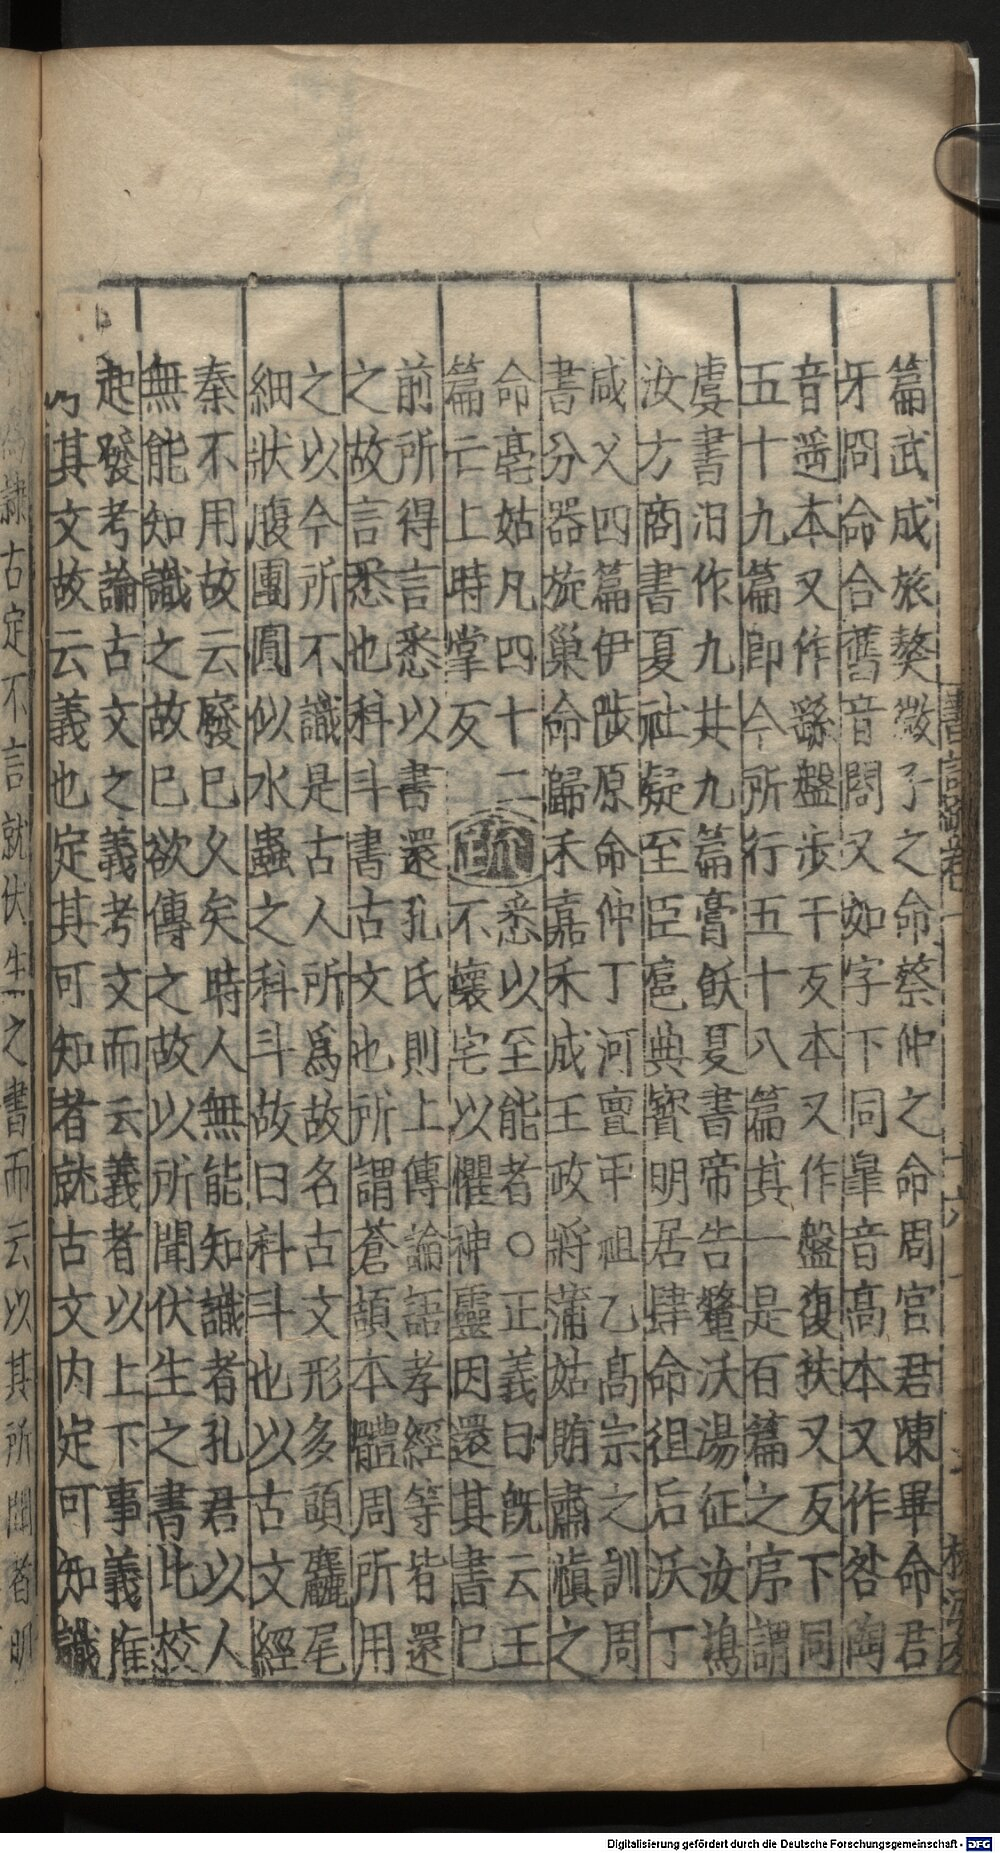 篇武成旅獒微子之命蔡仲之命周官君陳畢命君
牙冏命合舊音閤又如字下同臯音高本又作咎陶
音遥本又作繇盤步干反本又作盤復扶又反下同
五十九篇即今所行五十八篇其一是百篇之序謂
虞書汨作九共九篇膏飫夏書帝告釐沃湯征汝鳩
汝方商書夏社疑至臣扈典寳明居肆命徂后沃丁
咸乂四篇伊陟原命仲丁河亶甲祖乙髙宗之訓周
書分器旋巢命歸禾嘉禾成王政將蒲姑賄肅愼之
命亳姑凡四十二
篇亡上時掌反
疏
悉以至能者○正義曰旣云王
不壞宅以懼神靈因還其書已
前所得言悉以書還孔氏則上傳論語孝經等皆還
之故言悉也科斗書古文也所謂蒼頡本體周所用
之以今所不識是古人所爲故名古文形多頭麤尾
細狀腹團圓似水蟲之科斗故曰科斗也以古文經
秦不用故云廢已久矣時人無能知識者孔君以人
無能知識之故已欲傳之故以所聞伏生之書比校
起發考論古文之義考文而云義者以上下事義推
其文故云義也定其可知者就古文内定可知識
隷古定不言就伏生之書而云以其所聞者明
Digitalisierung gefördert durch die Deutsche Forschungsgemeinschaft - DFG